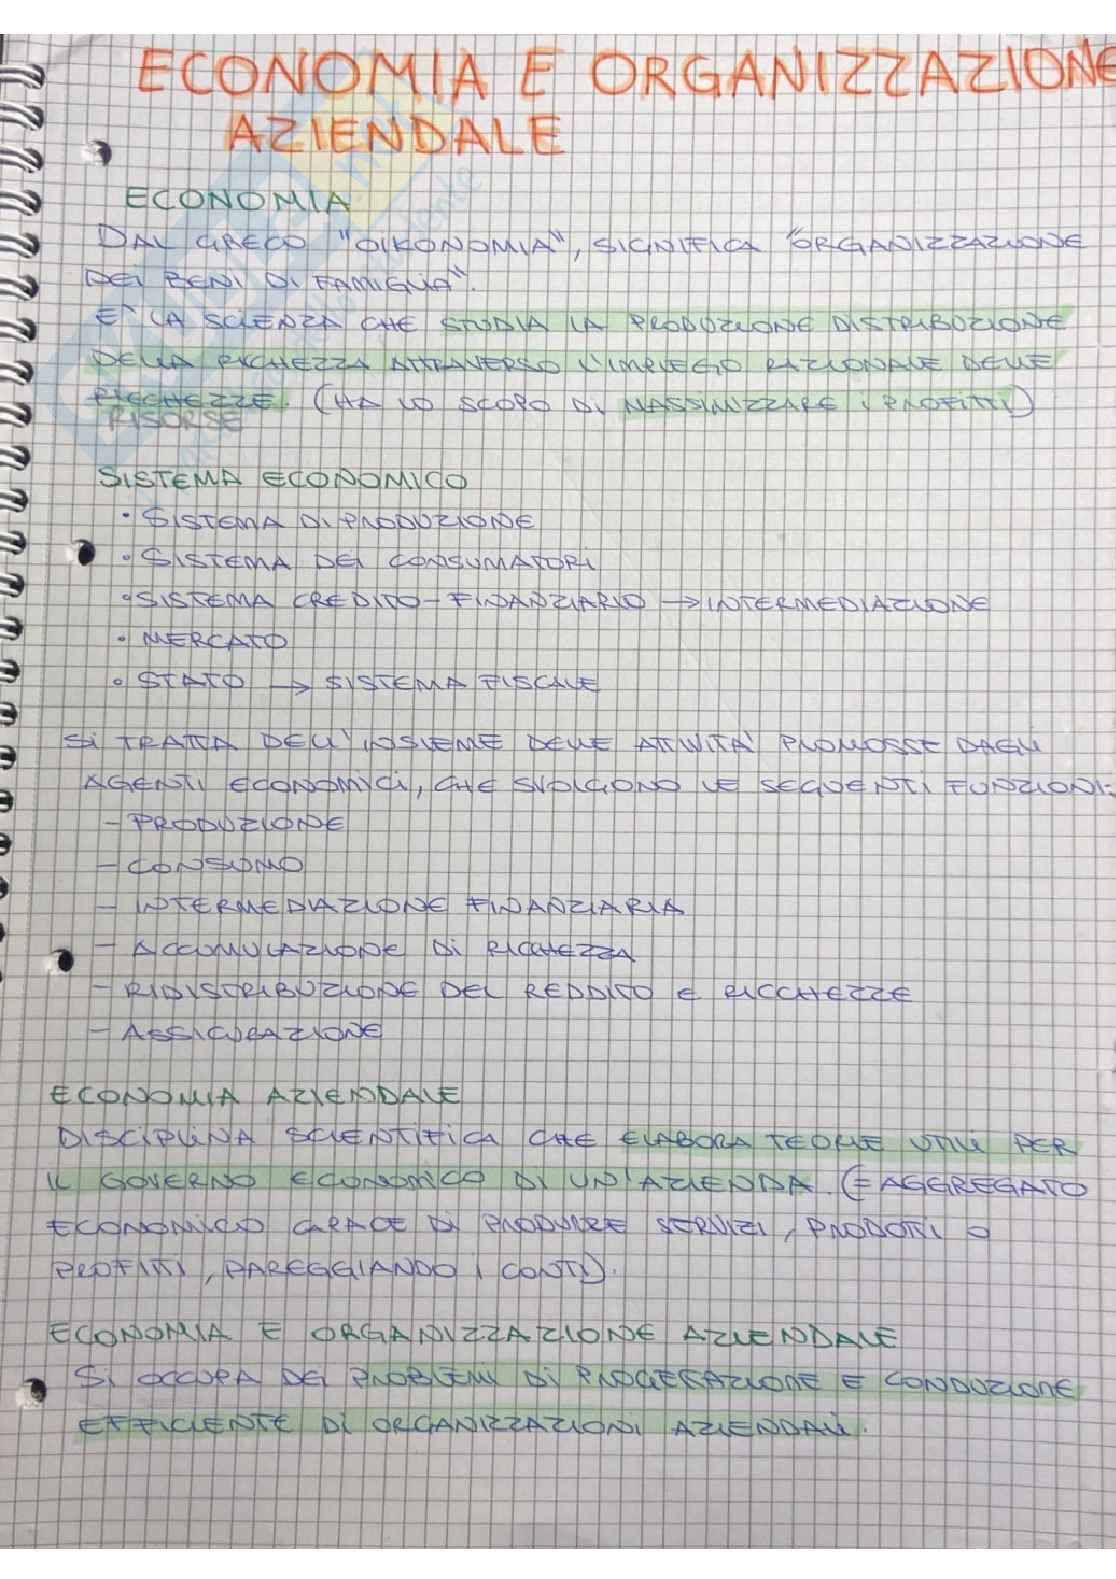 ECONOMIA E ORGANIZZAZIONE
AZIENDALE
ECONOMIA
DAL GRECO "OIKONOMIA", SIGNIFICA "ORGANIZZAZIONE
DEI BENI DI FAMIGLIA".
E' LA SCIENZA CHE STUDIA LA PRODUZIONE DISTRIBUZIONE
DELLA RICHEZZA ATTRAVERSO L'IMPIEGO RAZIONALE DELLE
RICCHEZZE. (HA LO SCOPO DI MASSIMIZZARE i PROFITTI)
RISORSE
SISTEMA ECONOMICO
• SISTEMA DI PRODUZIONE
• SISTEMA DEI CONSUMATORI
• SISTEMA CREDITO-FINANZIARIO → INTERMEDIAZIONE
• MERCATO
• STATO → SISTEMA FISCALE
Si TRATTA DELL'INSIEME DELLE ATTIVITA' PROMOSSE DAGLI
AGENTI ECONOMICi, CHE SVOLGONO LE SEGUENTI FUNZIONI:
- PRODUZIONE
- CONSUMO
- INTERMEDIAZIONE FINANZIARIA
- ACCUMULAZIONE Di RICCHEZZA
- RIDISTRIBUZIONE DEL REDDITO E RICCHEZZE
- ASSICURAZIONE
ECONOMIA AZIENDALE
DISCIPLINA SCIENTIFICA CHE ELABORA TEORIE UTILI PER
IL GOVERNO ECONOMICO DI UN'AZIENDA. (= AGGREGATO
ECONOMICO CAPACE DI PRODURRE SERVIZI, PRODOTTI O
PROFITTI, PAREGGIANDO I CONTI).
ECONOMIA E ORGANIZZAZIONE AZIENDALE
Si OCCUPA DEI PROBLEMI Di PROGETTAZIONE E CONDUZIONE
EFFICIENTE DI ORGANIZZAZIONI AZIENDALI.